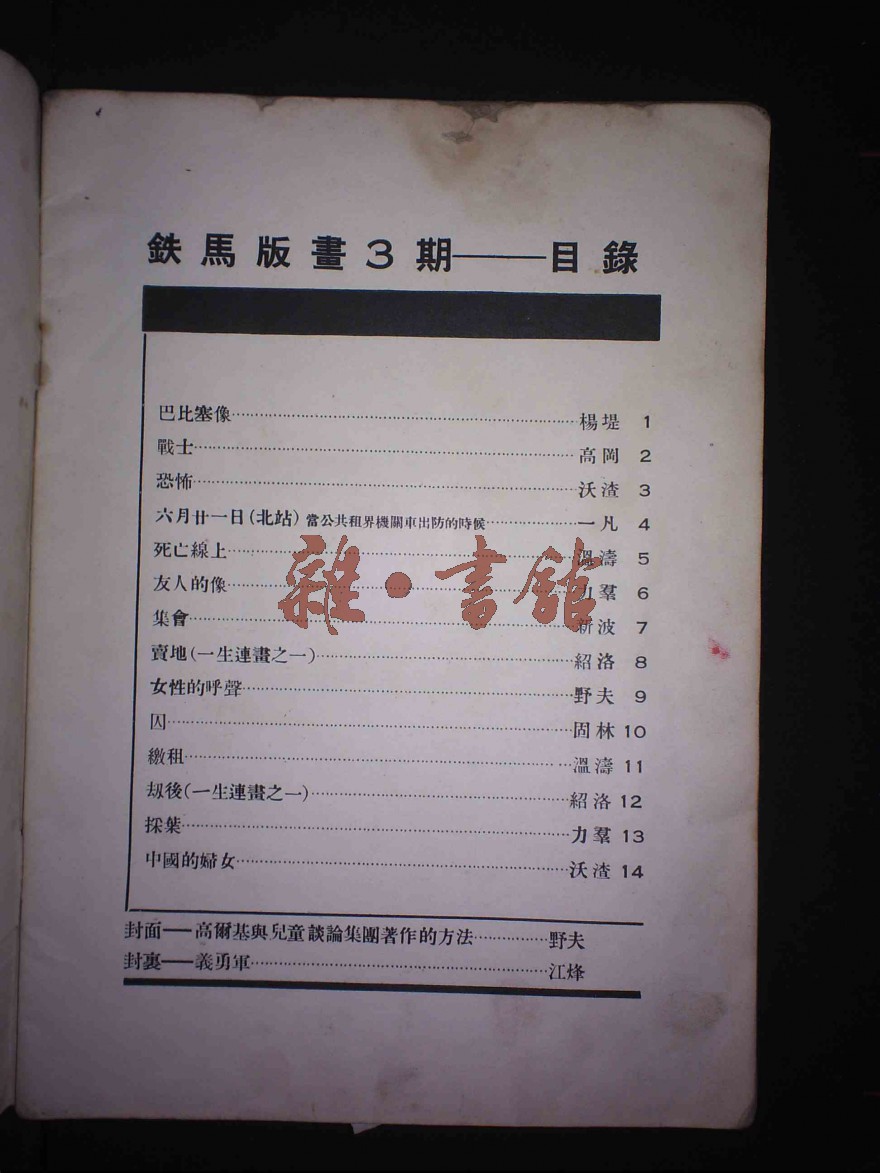 鉄馬版畫3期——目錄
巴比塞像……楊堤 1
戰士……高岡 2
恐怖……沃渣 3
六月廿一日(北站)當公共租界機關車出防的時候……一凡 4
死亡線上……溫濤 5
友人的像……力羣 6
集會……新波 7
賣地(一生連畫之一)……紹洛 8
女性的呼聲……野夫 9
囚……固林 10
繳租……溫濤 11
刼後(一生連畫之一)……紹洛 12
採葉……力羣 13
中國的婦女……沃渣 14
封面——高爾基與兒童談論集團著作的方法……野夫
封裏——義勇軍……江烽
雜·書館